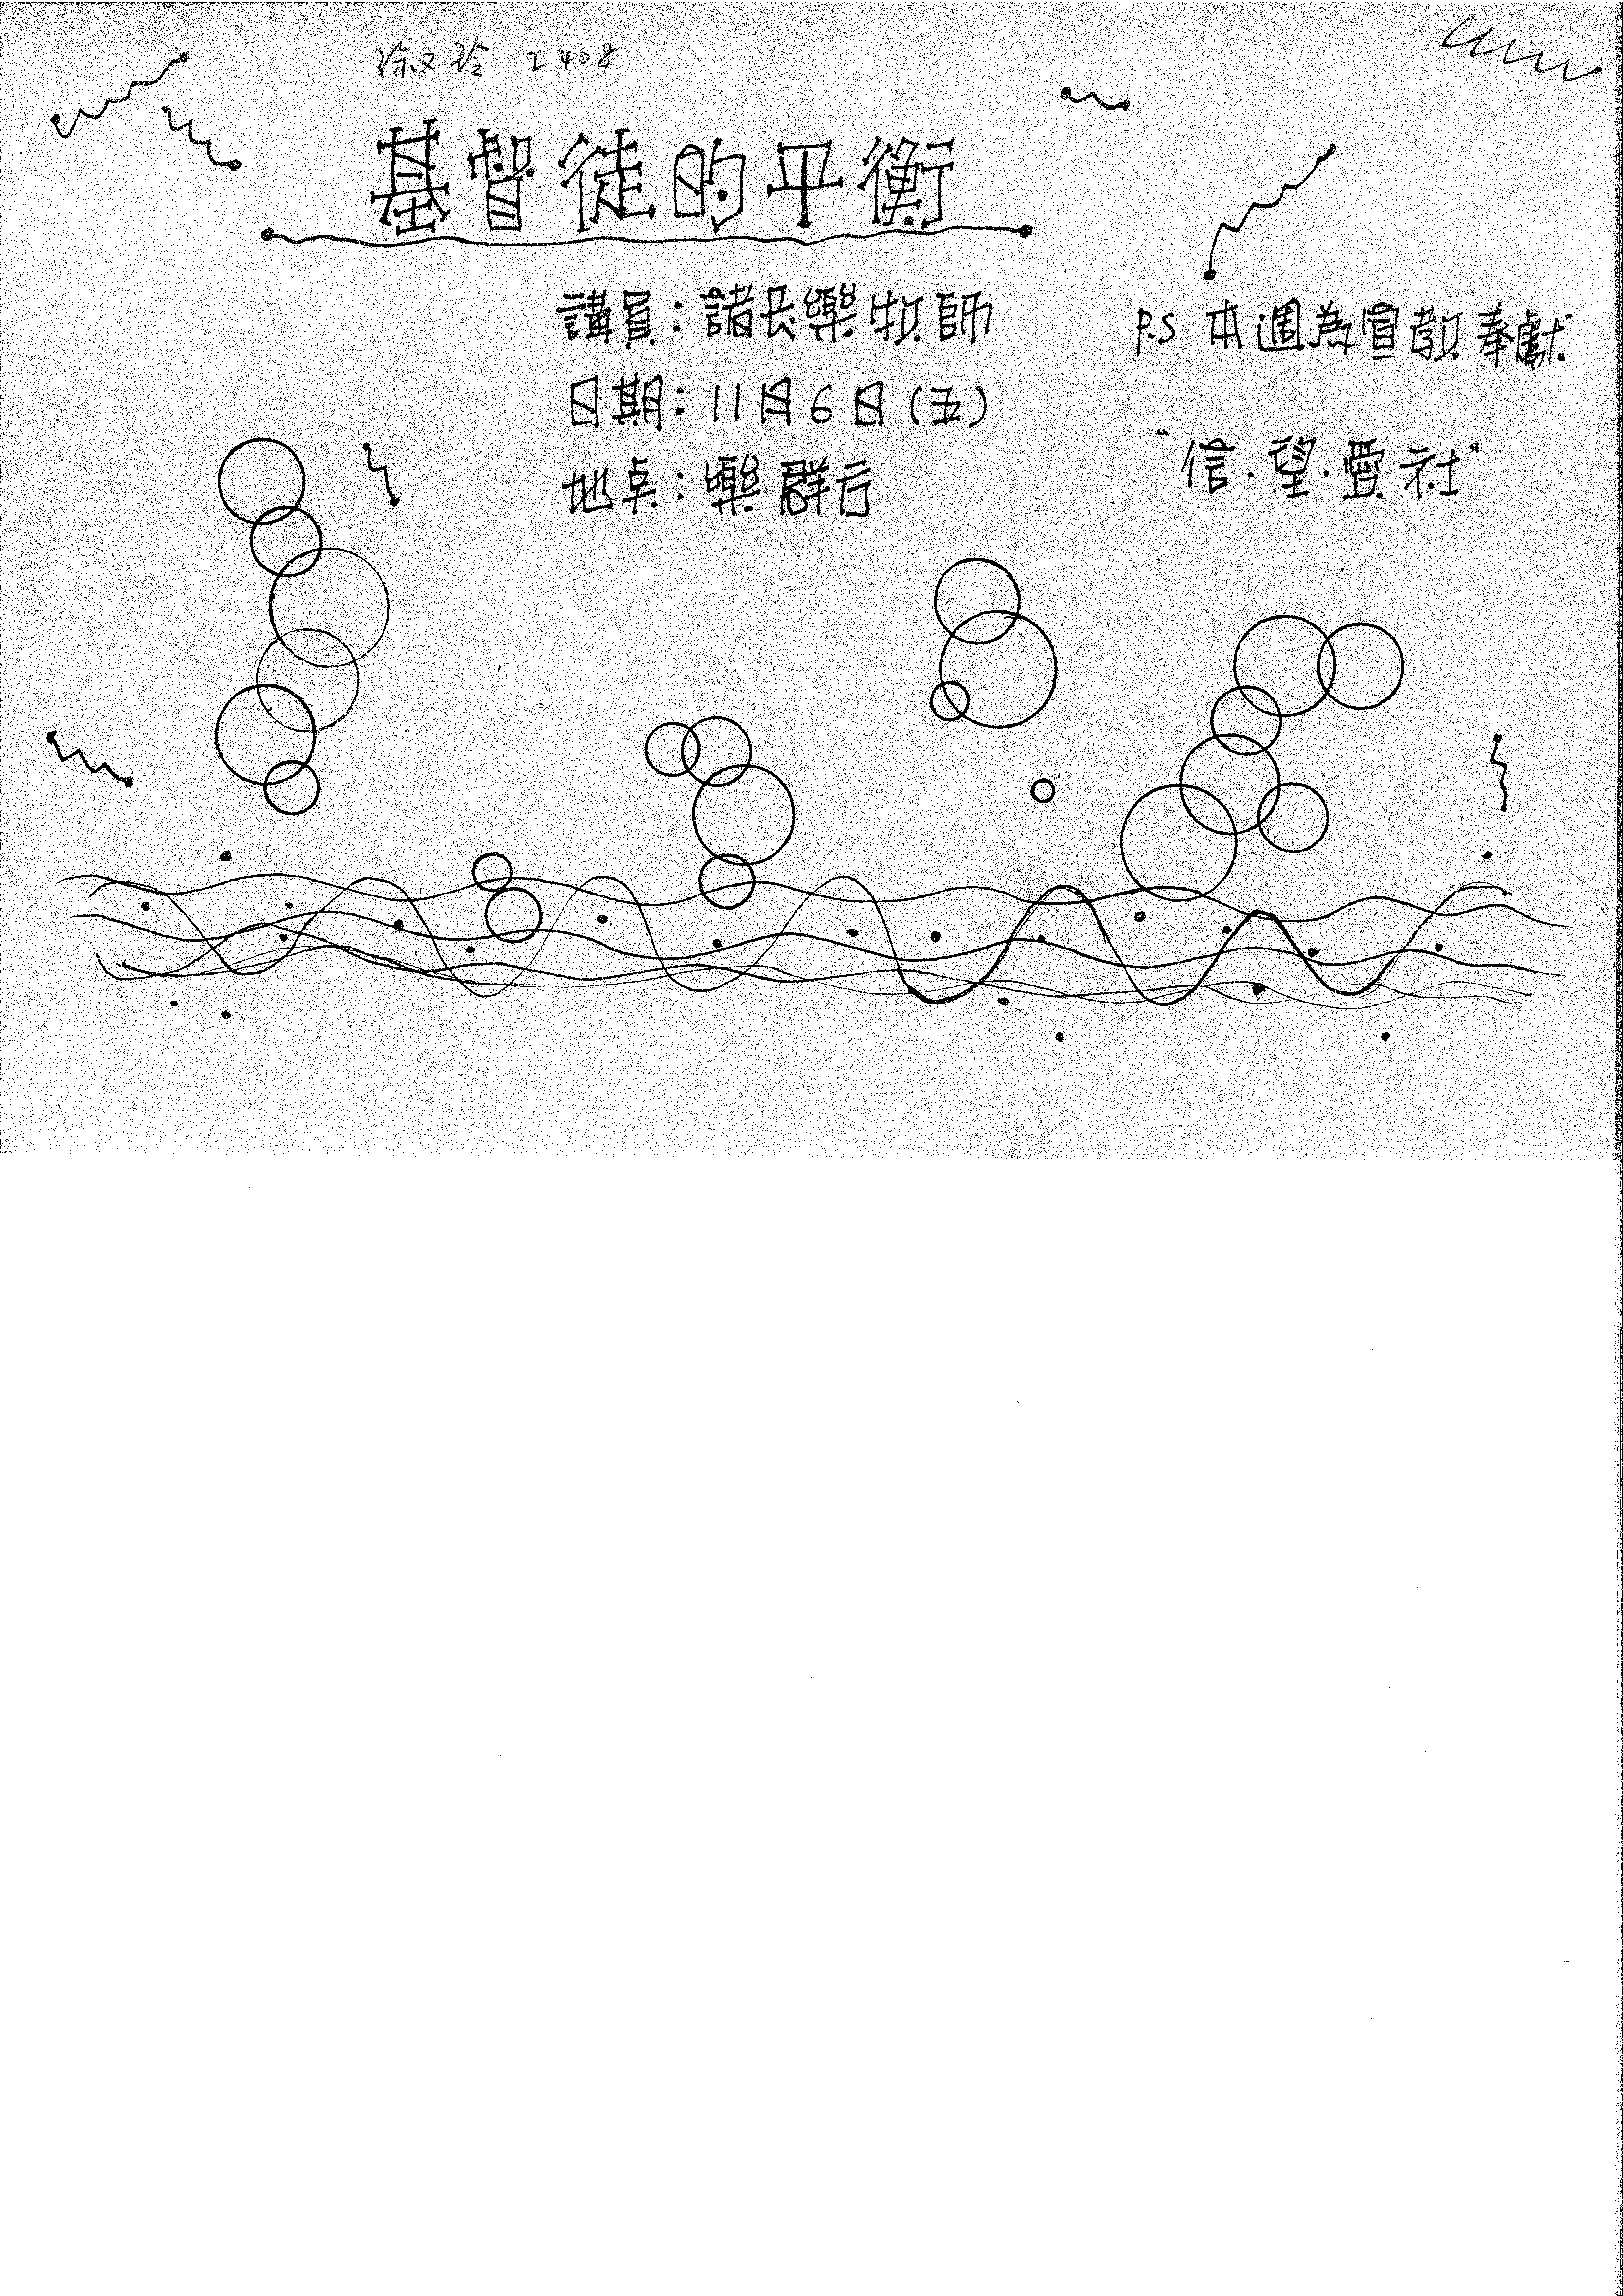 徐又玲 I408
基督徒的平衡
講員：諸長樂牧師
日期：11月6日(五)
地點：樂群廳
P.S 本週為宣教奉獻
"信.望.愛社"